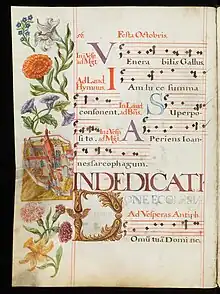 Festa Octobris.
In I. Vesp.
ad Mgt.
V Enera bilis Gallus.
Ad Laud
Hymnus.
I Am lu ce summa
consonent.
In Laud
ad Bñs.
S Uperpo
si to.
In 2. Vesp
ad Mgt.
A Periens Ioan-
nes sarcophagum.
IN DEDICATI
ONE ECCLESIÆ
Ad Vesperas Antiph.
Domũ tuã Domi ne,